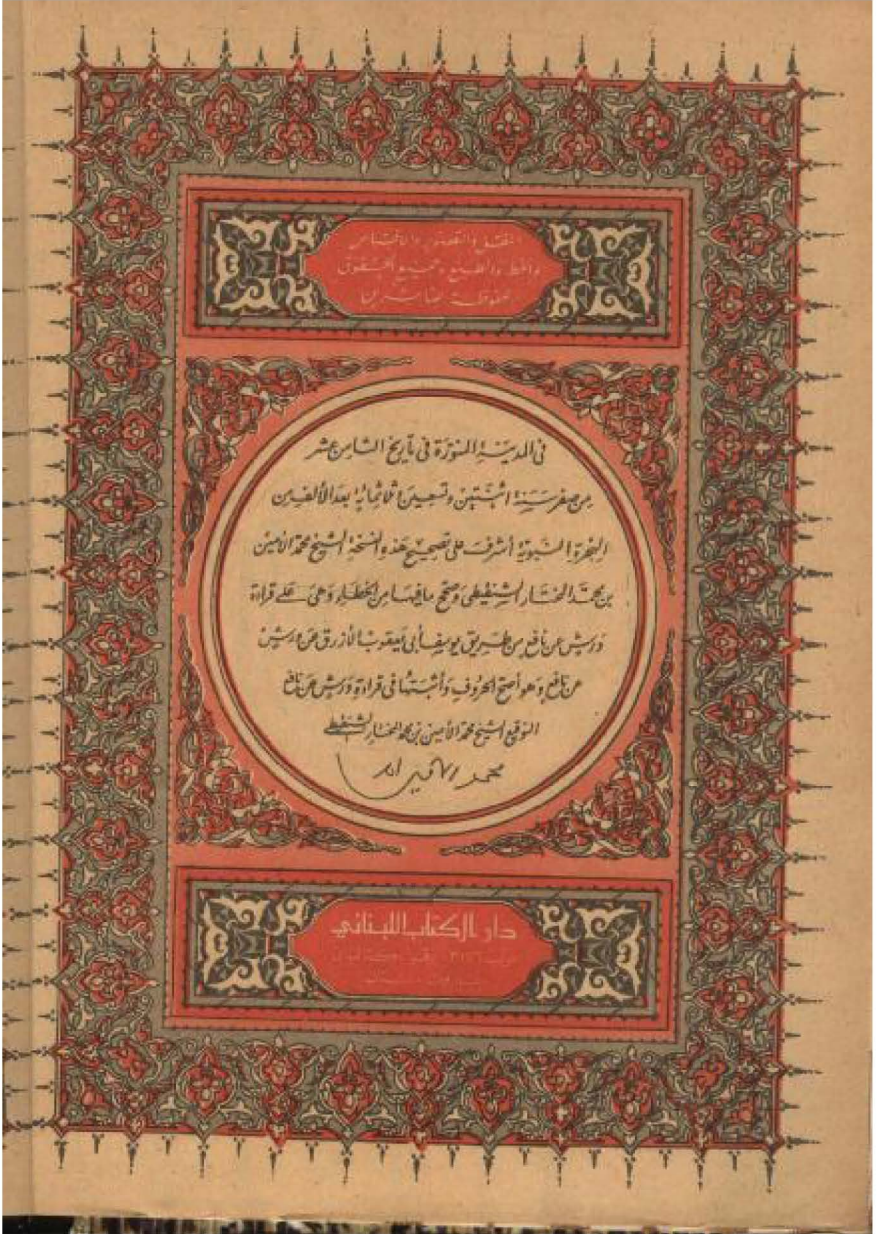 النقل والتصوير والاقتباس
والخط والطبع وجميع الحقوق
محفوظة
في المدينة المنورة في تاريخ الثامن عشر
من صفر سنة اثنتين وتسعين وثلاثمائة بعد الألف من
الهجرة النبوية أشرف على تصحيح هذه النسخة الشيخ محمد الأمين
بن محمد المختار الشنقيطي وصحح ما فيها من الخطاء وهي على قراءة
ورش عن نافع من طريق يوسف أبي يعقوب الأزرق عن ورش
عن نافع وهو أصح الحروف وأثبتها في قراءة ورش عن نافع
التوقيع الشيخ محمد الأمين بن محمد المختار الشنقيطي
محمد الأمين
دار الكتاب اللبناني